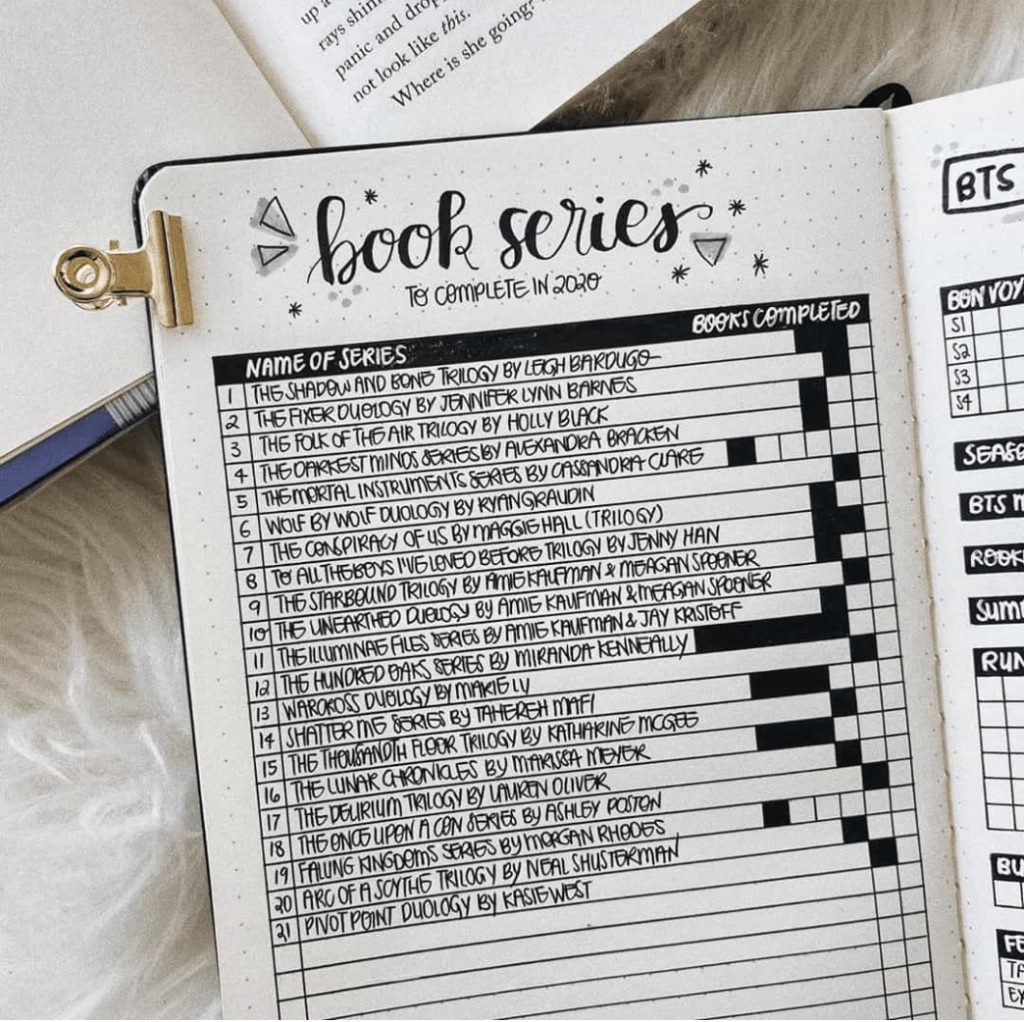 up a
rays shim
panic and drop
not look like this.
Where is she going?
book series
TO COMPLETE IN 2020
NAME OF SERIES BOOKS COMPLETED
1 THE SHADOW AND BONE TRILOGY BY LEIGH BARDUGO
2 THE FIXER DUOLOGY BY JENNIFER LYNN BARNES
3 THE FOLK OF THE AIR TRILOGY BY HOLLY BLACK
4 THE DARKEST MINDS SERIES BY ALEXANDRA BRACKEN
5 THE MORTAL INSTRUMENTS SERIES BY CASSANDRA CLARE
6 WOLF BY WOLF DUOLOGY BY RYAN GRAUDIN
7 THE CONSPIRACY OF US BY MAGGIE HALL (TRILOGY)
8 TO ALL THE BOYS I'VE LOVED BEFORE TRILOGY BY JENNY HAN
9 THE STARBOUND TRILOGY BY AMIE KAUFMAN & MEAGAN SPOONER
10 THE UNEARTHED DUOLOGY BY AMIE KAUFMAN & MEAGAN SPOONER
11 THE ILLUMINAE FILES SERIES BY AMIE KAUFMAN & JAY KRISTOFF
12 THE HUNDRED OAKS SERIES BY MIRANDA KENNEALLY
13 WARCROSS DUOLOGY BY MARIE LU
14 SHATTER ME SERIES BY TAHEREH MAFI
15 THE THOUSANDTH FLOOR TRILOGY BY KATHARINE MCGEE
16 THE LUNAR CHRONICLES BY MARISSA MEYER
17 THE DELIRIUM TRILOGY BY LAUREN OLIVER
18 THE ONCE UPON A CON SERIES BY ASHLEY POSTON
19 FALLING KINGDOMS SERIES BY MORGAN RHODES
20 ARC OF A SCYTHE TRILOGY BY NEAL SHUSTERMAN
21 PIVOT POINT DUOLOGY BY KASIE WEST
BTS
BON VOY
S1
S2
S3
S4
SEASO
BTS
ROOK
SUMM
RUN
BU
FE
TA
EX